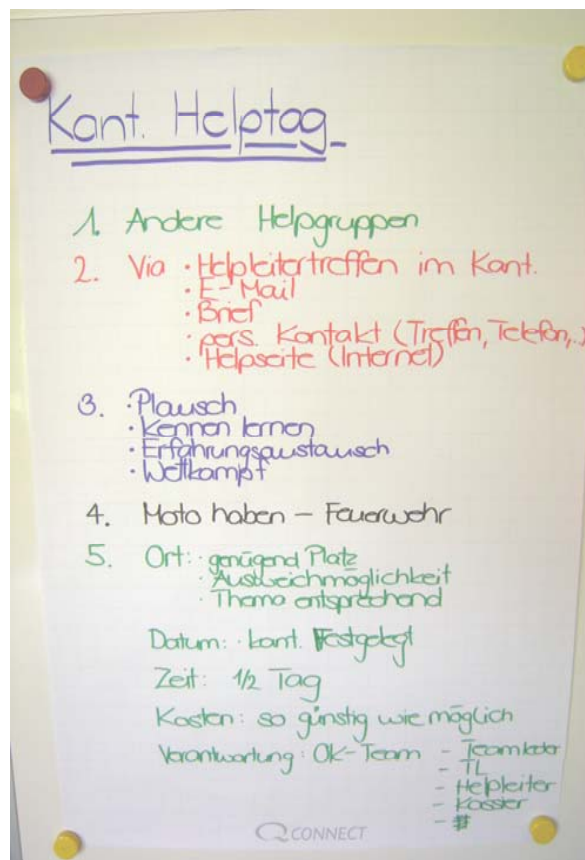 Kant. Helptag
1. Andere Helpgruppen
2. Via · Helpleitertreffen im Kant.
· E-Mail
· Brief
· pers. Kontakt (Treffen, Telefon,..)
· Helpseite (Internet)
3. · Plausch
· Kennen lernen
· Erfahrungsaustausch
· Wettkampf
4. Moto haben – Feuerwehr
5. Ort: · genügend Platz
· Ausweichmöglichkeit
· Thema entsprechend
Datum: · kant. Festgelegt
Zeit: 1/2 Tag
Kosten: so günstig wie möglich
Verantwortung: OK-Team - Teamleder
- TL
- Helpleiter
- Kassier
- #
Q CONNECT